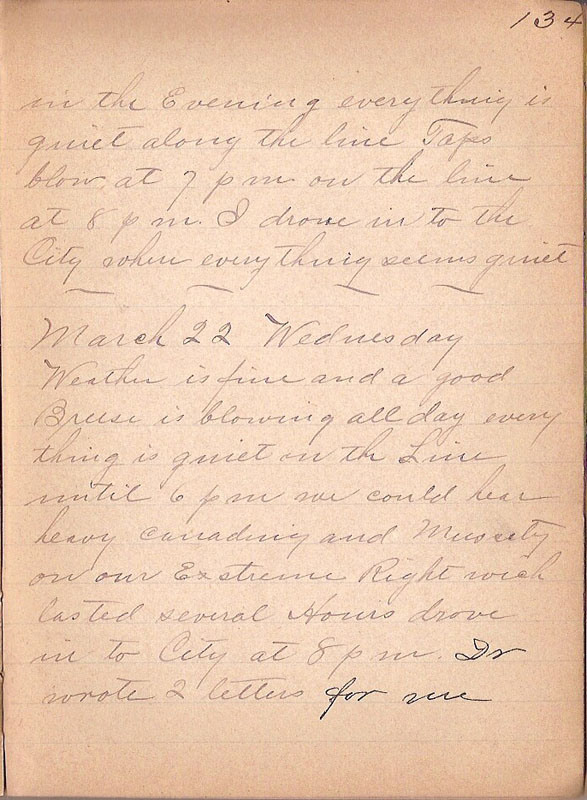 134
in the Evening everything is
quiet along the line Taps
blow at 7 p m on the line
at 8 p m. I drove in to the
City where everything seems quiet
March 22 Wednesday
Weather is fine and a good
Breese is blowing all day every
thing is quiet on th Line
until 6 p m we could hear
heavy canading and Muskety
on our Exstreme Right wich
lasted several Hours drove
in to City at 8 p m. Dr
wrote 2 letters for me